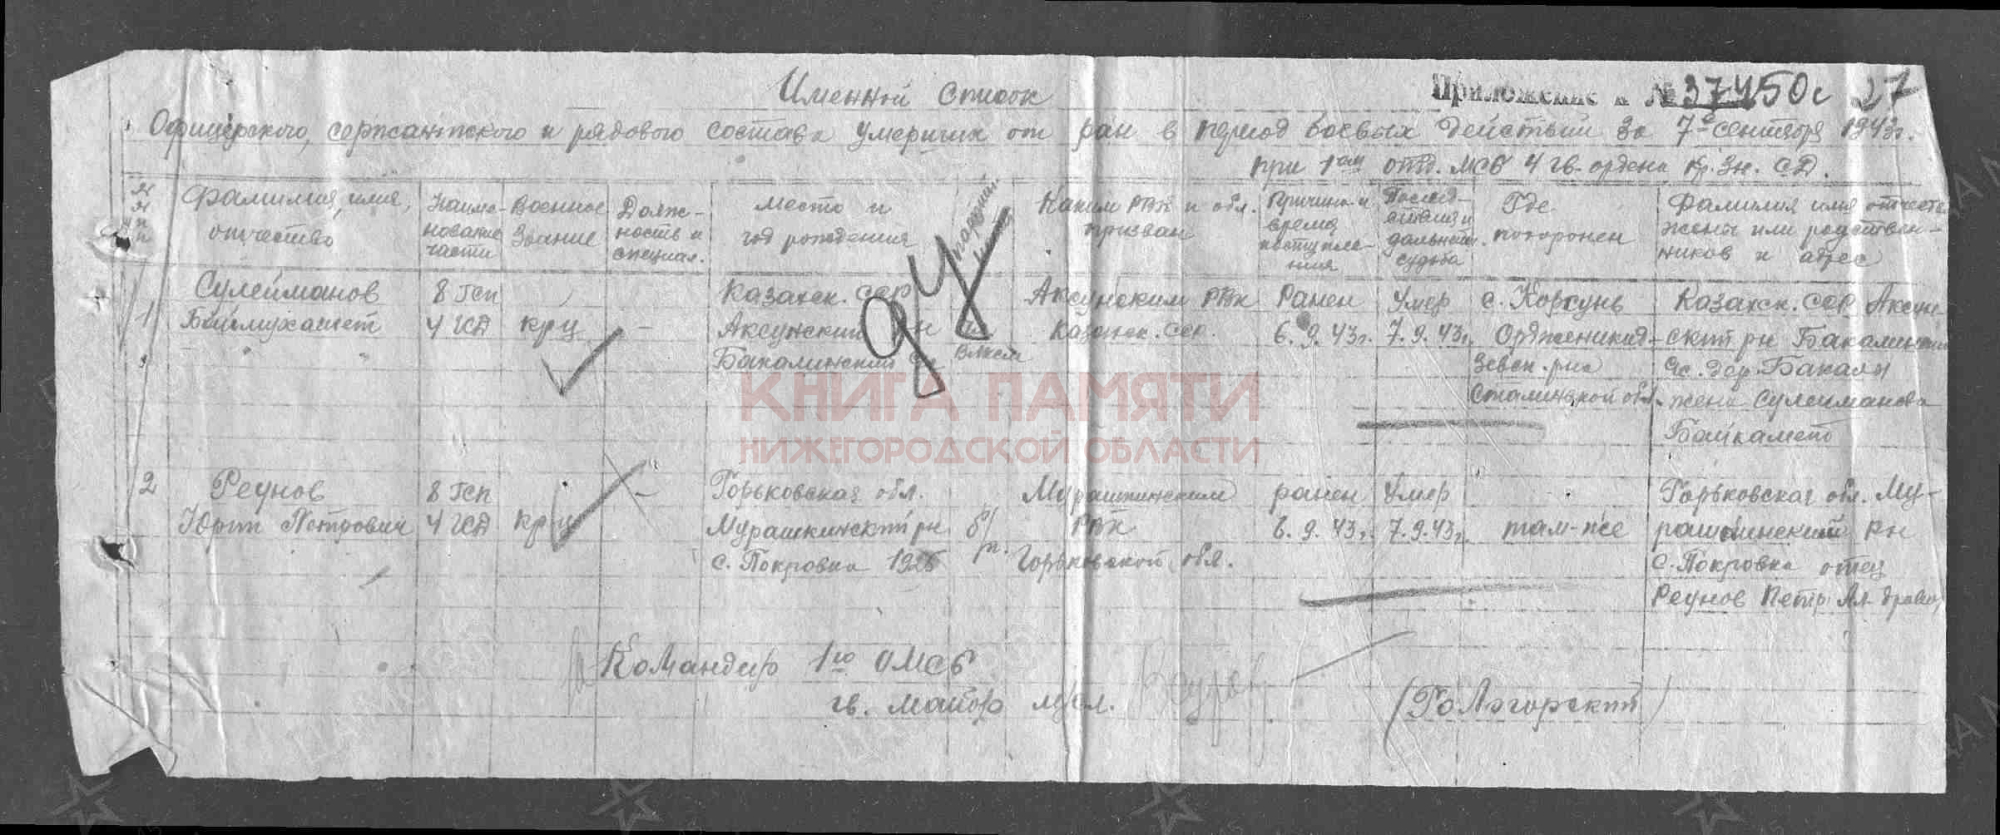 Приложение к № 37450с 27
Именной список
Офицерского, сержантского и рядового состава умерших от ран в период боевых действий за 7е сентября 1943г.
при 1ом отд. МСб 4 гв. ордена Кр. Зн. СД.
№№ пп
Фамилия, имя, отчество
Наиме-
нование
части
Военное
звание
Долж-
ность и
специал.
Место и
год рождения
Каким РВК и обл.
призван
Причина и
время
поступле-
ния
Где
похоронен
Фамилия имя отчеств
жены или родствен-
ников и адрес
1
Сулейманов
8 Гсп
4 ГСД
крц
-
Казахск. ССР
Аксунский
Бакалинский
Аксунским РВК
Казахск. ССР.
Ранен
6.9.43г.
Умер
7.9.43г.
с. Корсунь
Орджоникид-
зевск. р-на
Сталинской обл.
Казахск. ССР Аксун-
ский рн
жена Сулейманова
2
Реунов
Юрий Петрович
8 Гсп
4 ГСД
крц
-
Горьковская обл.
Мурашкинский рн
с. Покровка 1925
б/п.
Мурашкинским
РВК
Горьковской обл.
ранен
6.9.43г.
Умер
7.9.43г.
там-же
Горьковская обл. Му-
рашкинский рн
с. Покровка отец
Реунов Петр
Командир 1го ОМСб
гв. майор м/сл.
КНИГА ПАМЯТИ
НИЖЕГОРОДСКОЙ ОБЛАСТИ